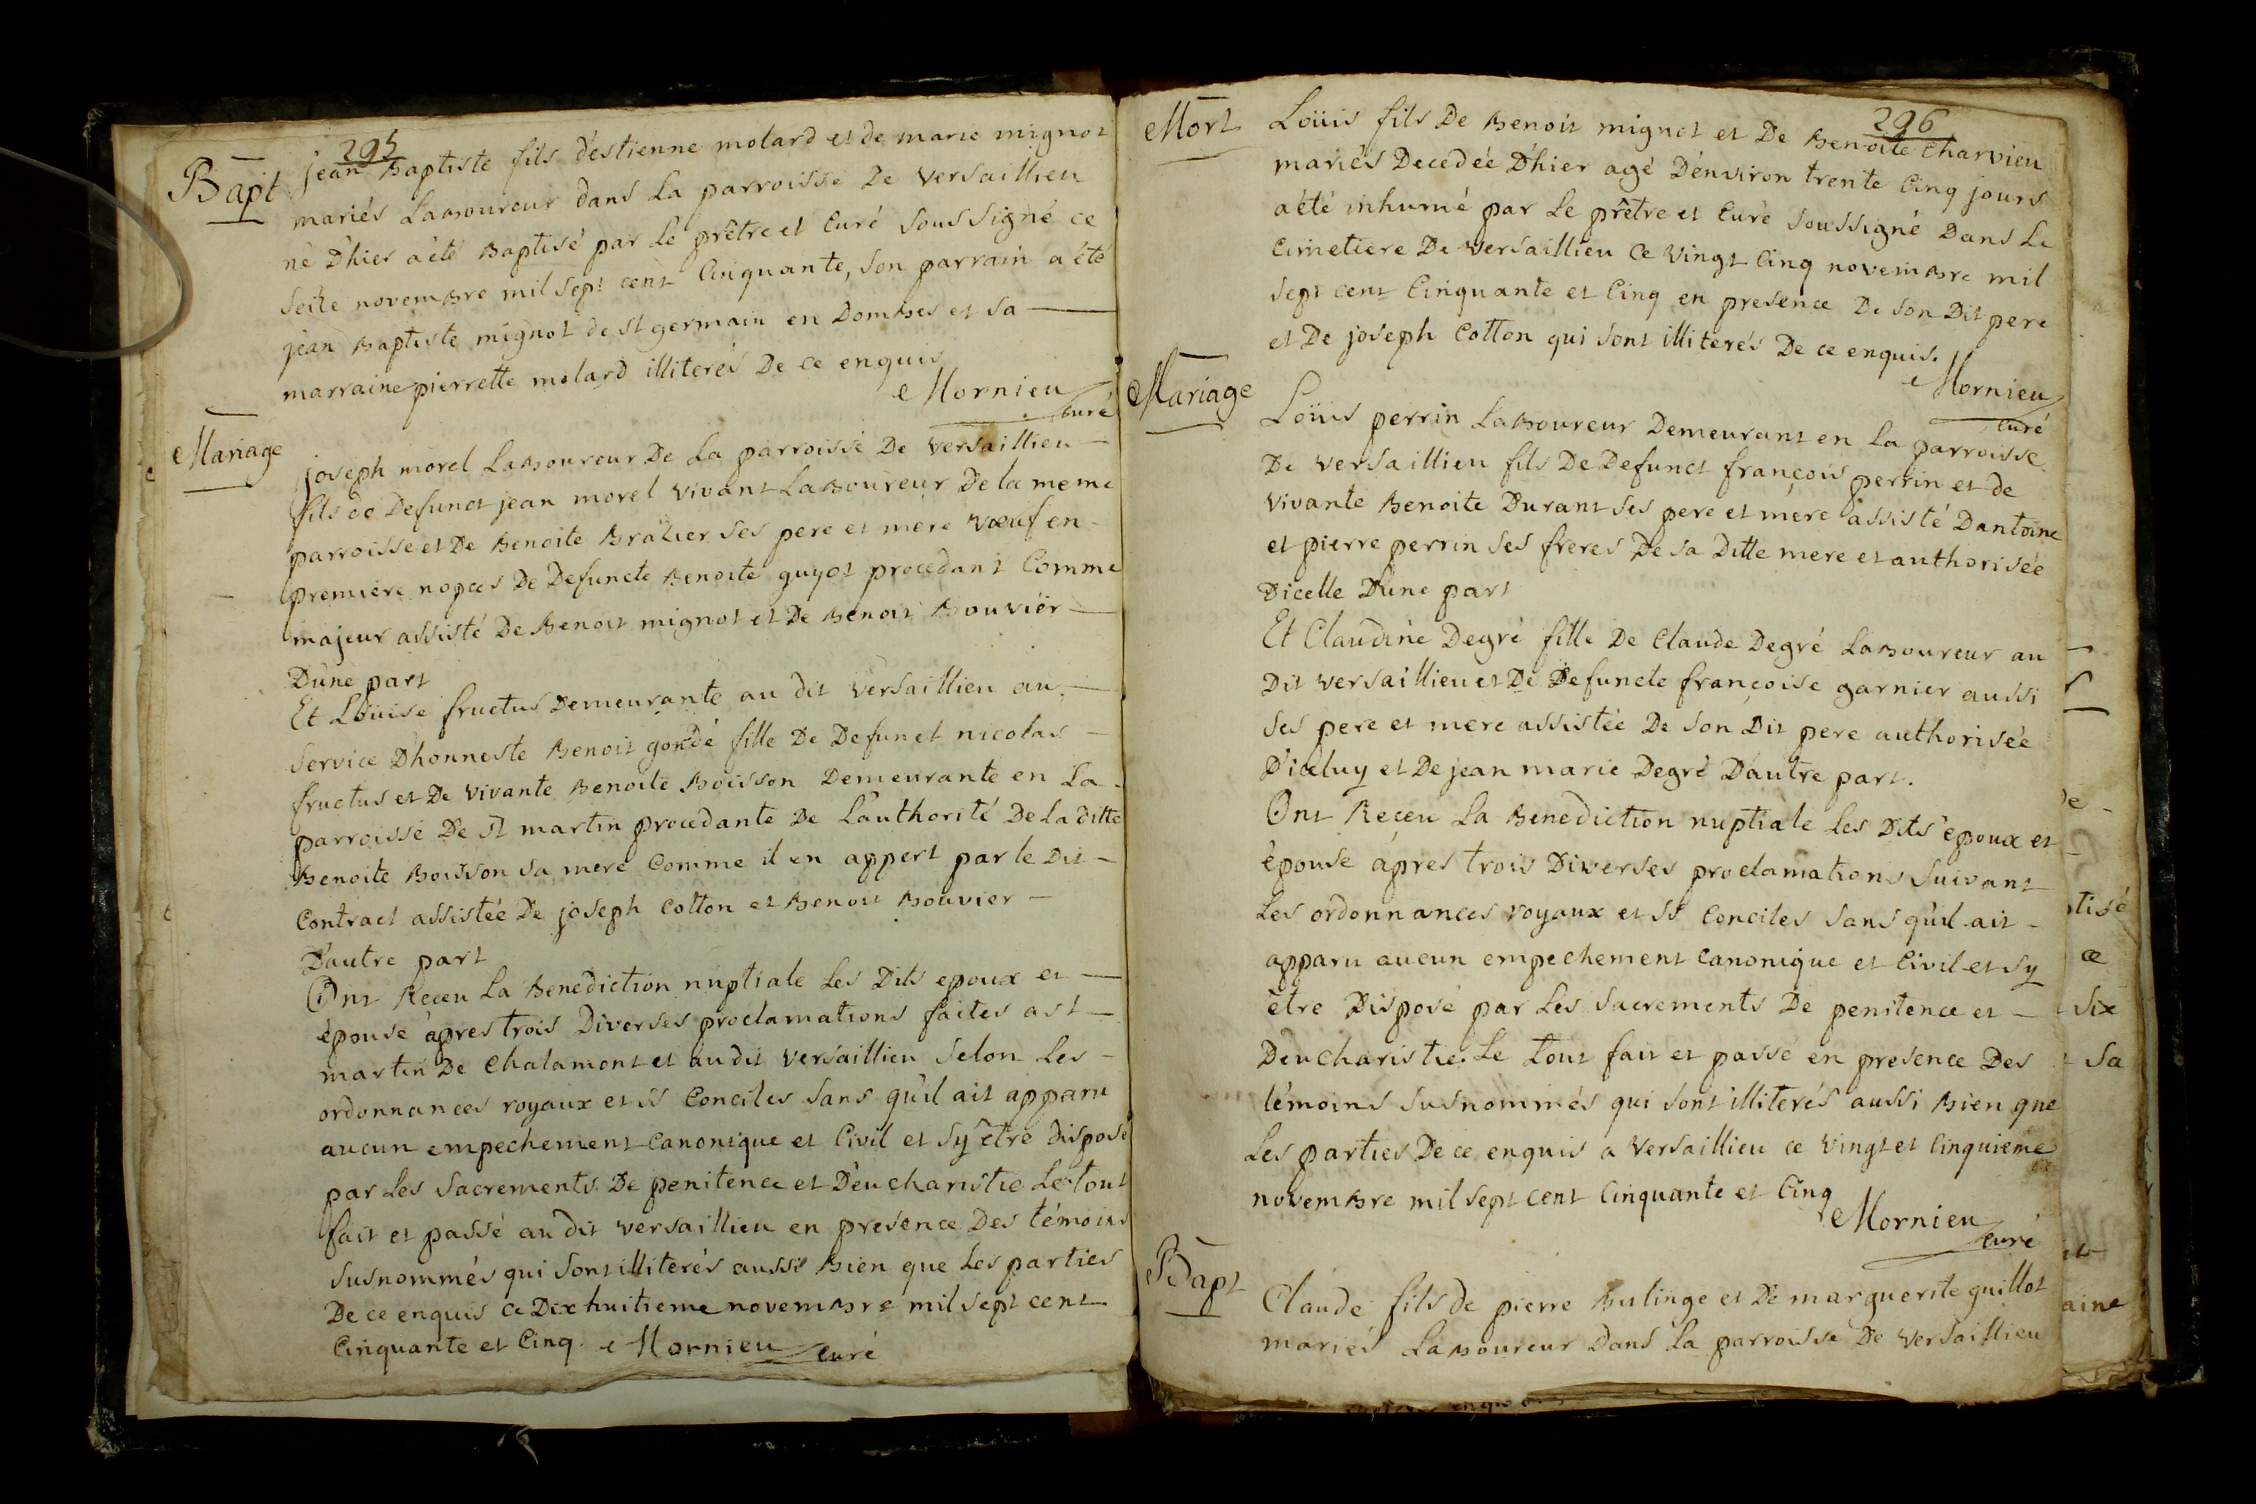 295
Bapt
jean Baptiste fils d'éstienne molard et de marie mignot
mariés Laboureur dans La parroisse De Versaillieu
né D'hier a été Baptisé par Le prêtre et Curé Soussigné ce
Seize novembre mil Sept cent Cinquante, Son parrain a été
jean Baptiste mignot de st germain en Dombes et Sa
marraine pierrette molard illiterés De ce enquis
Mornieu
Curé
Mariage
joseph morel Laboureur De La parroisse De Versaillieu
fils de Defunct jean morel Vivant Laboureur De la meme
parroisse et De Benoite Brazier Ses pere et mere Vœuf en
premiere nopces De Defuncte Benoite guyot procedant Comme
majeur assisté De Benoit mignot et De Benoit Bouvier
D'une part
Et Loüise fructus Demeurante au dit Versaillieu au
Service D'honneste Benoit gondé fille De Defunct nicolas
fructus et De Vivante Benoite Boisson Demeurante en La
parroisse De st martin procedante De L'authorité De La ditte
Benoite Boisson Sa mere Comme il en appert par le Dit
Contract assistée De joseph Cotton et Benoit Bouvier
D'autre part
Ont Receu La Benediction nuptiale Les Dits epoux et
épouse apres trois Diverses proclamations faites a st
martin De Chalamont et au dit Versaillieu Selon Les
ordonnances royaux et SS Conciles Sans qu'il ait apparu
aucun empechement Canonique et Civil et Sy être Disposé
par Les Sacrements De penitence et D'eucharistie Le tout
fait et passé au dit Versaillieu en presence Des témoins
Susnommés qui Sont illiterés aussi Bien que Les parties
De ce enquis ce Dix huitieme novembre mil Sept cent
Cinquante et Cinq. Mornieu Curé
296
Mort
Loüis fils De Benoit mignot et De Benoite Charvieu
mariés Decedée D'hier agé D'environ trente Cinq jours
a été inhumé par Le prêtre et Curé Soussigné Dans Le
Cimetiere De Versaillieu Ce Vingt Cinq novembre mil
Sept cent Cinquante et Cinq en presence De Son Dit pere
et De joseph Cotton qui Sont illiterés De ce enquis.
Mornieu
Curé
Mariage
Loüis perrin Laboureur Demeurant en La parroisse
De Versaillieu fils De Defunct françois perrin et de
Vivante Benoite Durant Ses pere et mere assisté D'antoine
et pierre perrin Ses freres De Sa Ditte mere et authorisée
D'icelle D'une part
Et Claudine Degré fille De Claude Degré Laboureur au
Dit Versaillieu et De Defuncte françoise garnier aussi
Ses pere et mere assistée De Son Dit pere authorisée
D'iceluy et De jean marie Degré D'autre part.
Ont Receu La Benediction nuptiale Les Dits epoux et
épouse apres trois Diverses proclamations Suivant
Les ordonnances royaux et SS Conciles Sans qu'il ait
apparu aucun empechement Canonique et Civil et Sy
être Disposé par Les Sacrements De penitence et
D'eucharistie. Le tout fait et passé en presence Des
témoins Susnommés qui Sont illiterés aussi Bien que
Les parties De ce enquis a Versaillieu ce Vingt et Cinquieme
novembre mil Sept cent Cinquante et Cinq
Mornieu
Curé
Bapt
Claude fils de pierre Bulinge et De marguerite guillot
mariés Laboureur Dans La parroisse De Versaillieu